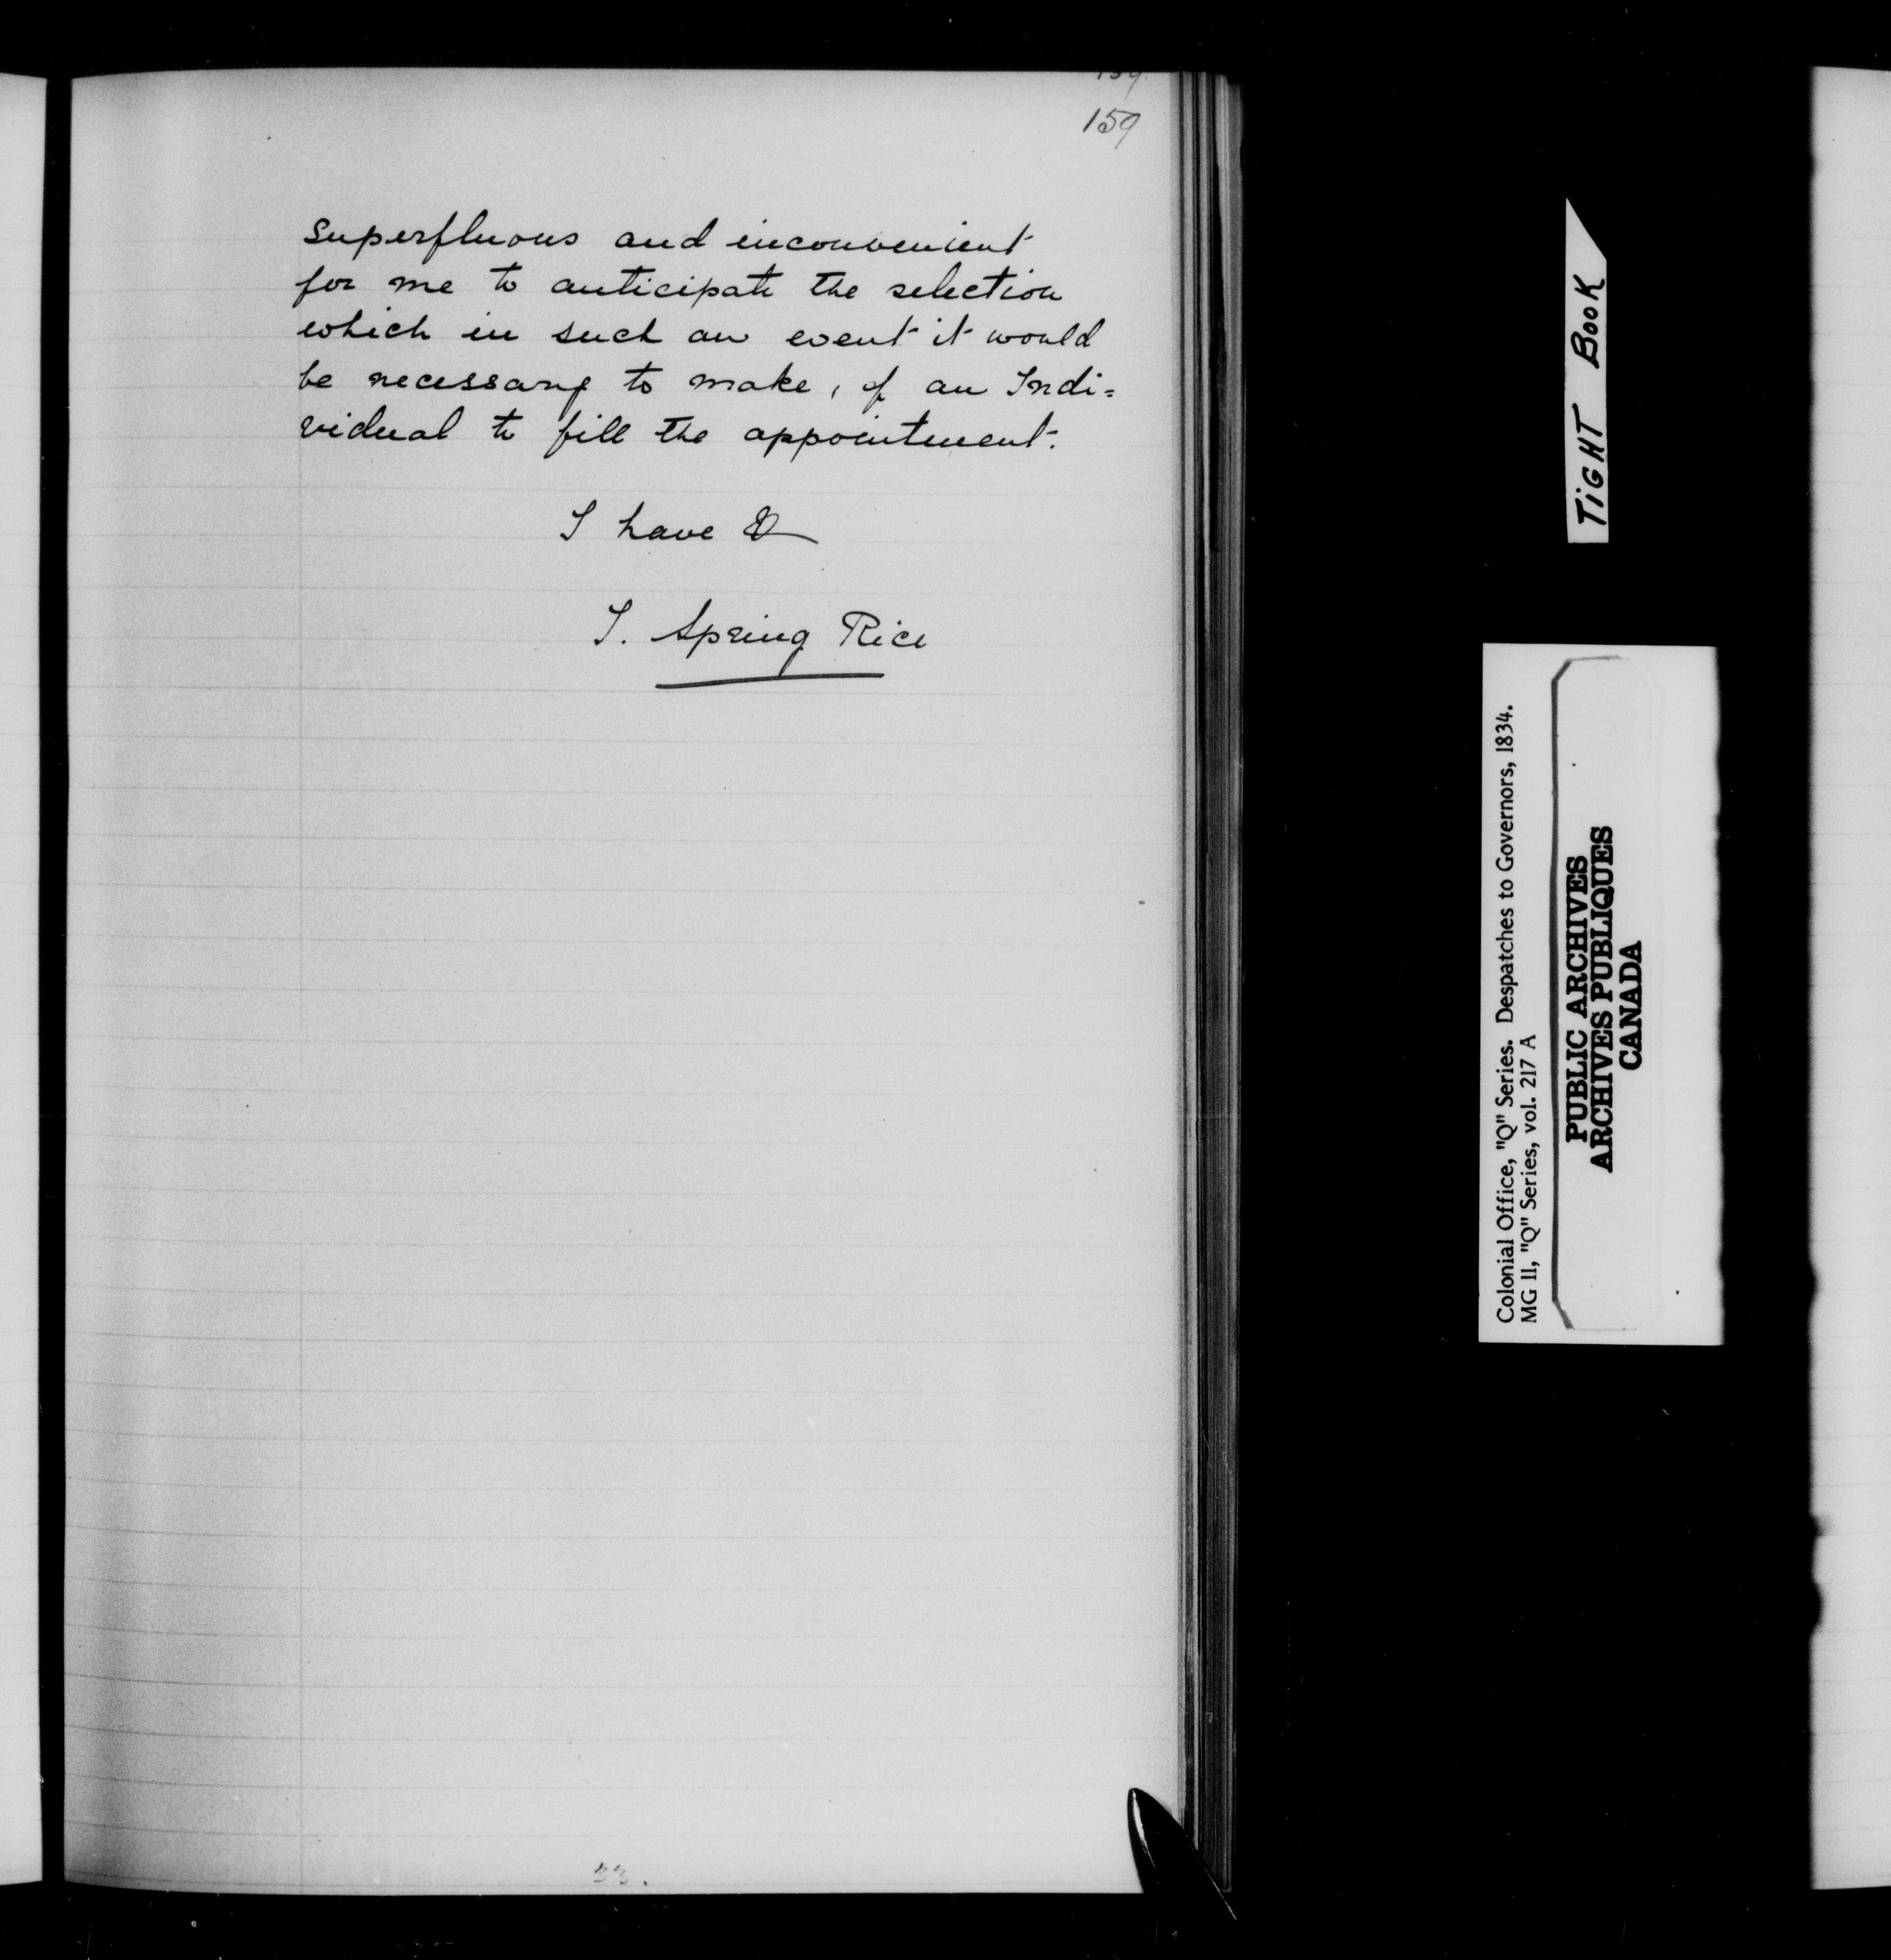 159
159
superfluous and inconvenient
for me to anticipate the selection
which in such an event it would
be necessary to make, of an Indi=
vidual to fill the appointment.
I have &
T. Spring Rice
33.
TIGHT BOOK
Colonial Office, "Q" Series. Despatches to Governors, 1834.
MG 11, "Q" Series, vol. 217 A
PUBLIC ARCHIVES
ARCHIVES PUBLIQUES
CANADA